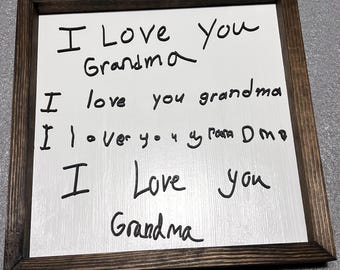 I Love You
Grandma
I love you grandma
I lover you grama Dma
I Love you
Grandma